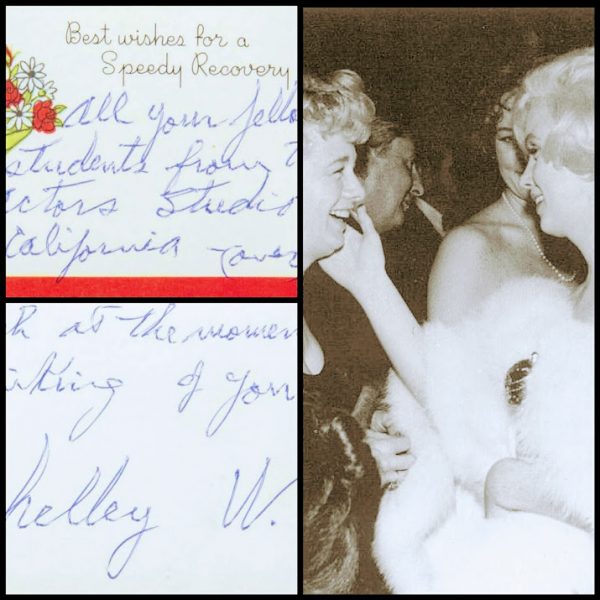 Best wishes for a
Speedy Recovery
all your fello
students from t
ctors Studio
California
at the momen
king of you
helley W.